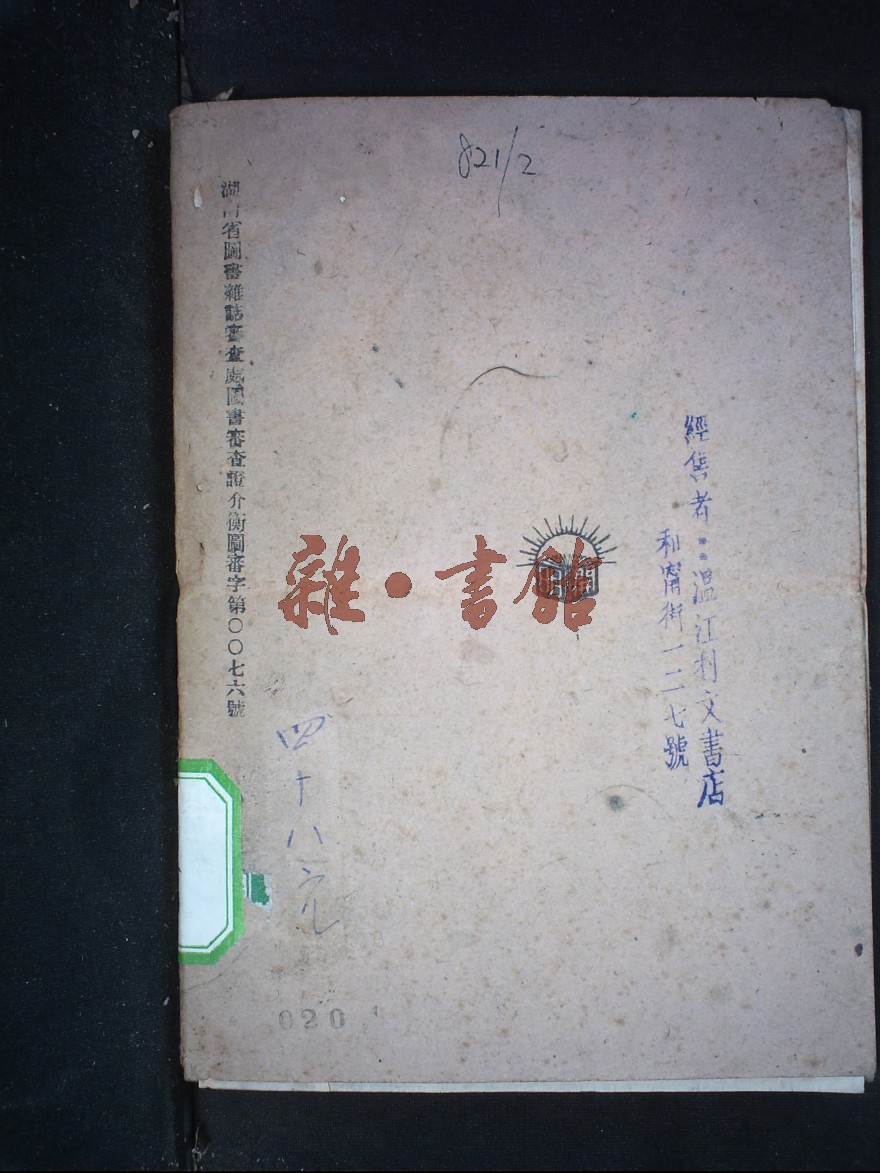 821/2
湖南省圖書雜誌審查處圖書審查證介衡圖審字第〇〇七六號
經售者：溫江利文書店
和甯街一二七號
雜·書館
四十八元
020